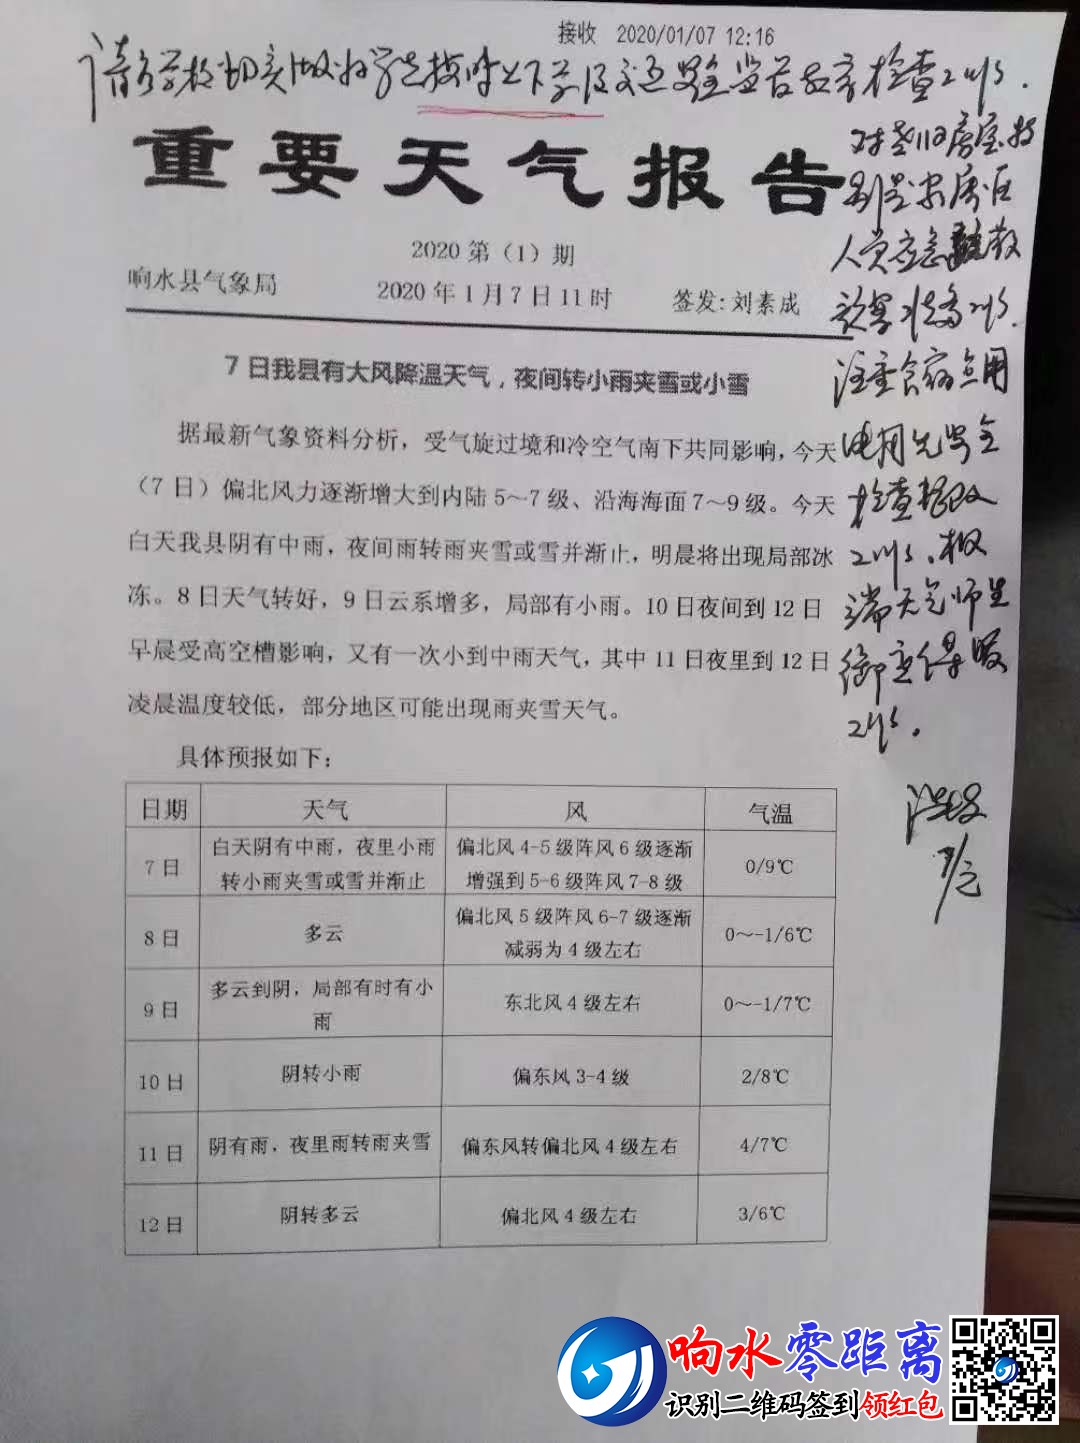 接收 2020/01/07 12:16
请各学校切实做好学生按时上下学及交通安全监管教育检查工作.
重要天气报告
2020 第（1）期
响水县气象局 2020 年 1 月 7 日 11 时 签发: 刘素成
7 日我县有大风降温天气，夜间转小雨夹雪或小雪
据最新气象资料分析，受气旋过境和冷空气南下共同影响，今天
（7 日）偏北风力逐渐增大到内陆 5～7 级、沿海海面 7～9 级。今天
白天我县阴有中雨，夜间雨转雨夹雪或雪并渐止，明晨将出现局部冰
冻。8 日天气转好，9 日云系增多，局部有小雨。10 日夜间到 12 日
早晨受高空槽影响，又有一次小到中雨天气，其中 11 日夜里到 12 日
凌晨温度较低，部分地区可能出现雨夹雪天气。
具体预报如下：
日期 天气 风 气温
7 日 白天阴有中雨，夜里小雨 偏北风 4-5 级阵风 6 级逐渐 0/9℃
转小雨夹雪或雪并渐止 增强到 5-6 级阵风 7-8 级
8 日 多云 偏北风 5 级阵风 6-7 级逐渐 0～-1/6℃
减弱为 4 级左右
9 日 多云到阴，局部有时有小 东北风 4 级左右 0～-1/7℃
雨
10 日 阴转小雨 偏东风 3-4 级 2/8℃
11 日 阴有雨，夜里雨转雨夹雪 偏东风转偏北风 4 级左右 4/7℃
12 日 阴转多云 偏北风 4 级左右 3/6℃
对老旧房屋特
别是
人员应急疏散
工作.
注重食宿点用
电用火安全
检查整改
工作、极
端天气师生
御寒保暖
工作。
响水零距离
识别二维码签到领红包